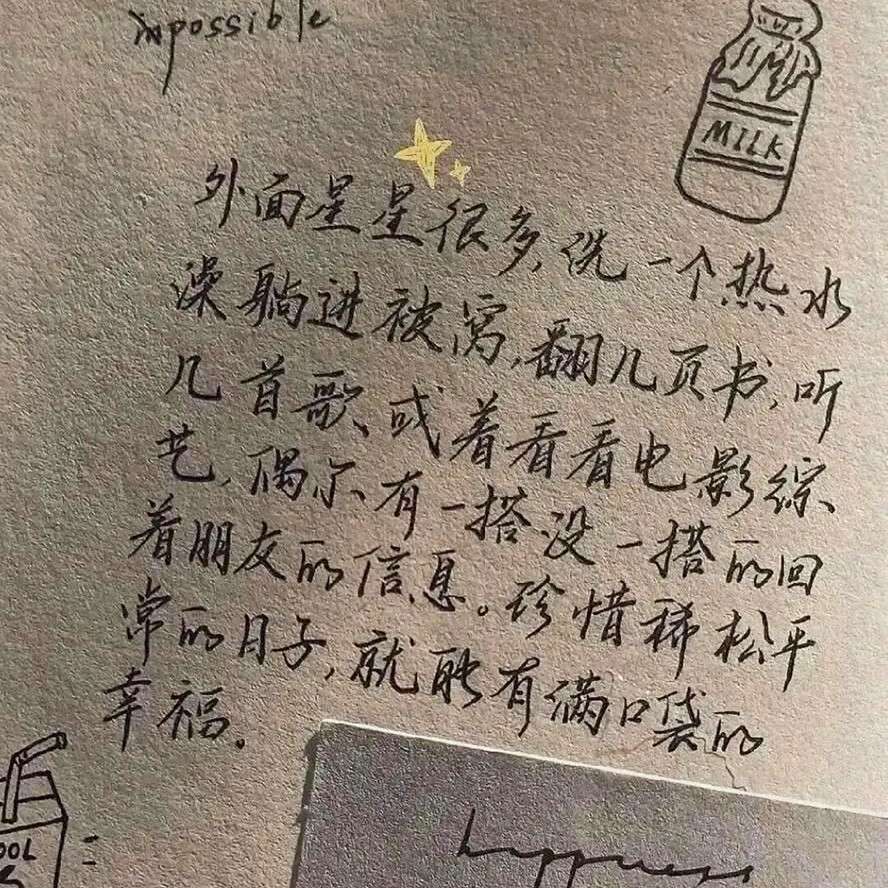 impossible
MILK
外面星星很多,洗一个热水
澡躺进被窝,翻几页书,听
几首歌、或着看看电影综
艺,偶尔有一搭没一搭的回
着朋友的信息。珍惜稀松平
常的日子,就能有满口袋的
幸福.
OOL
happness